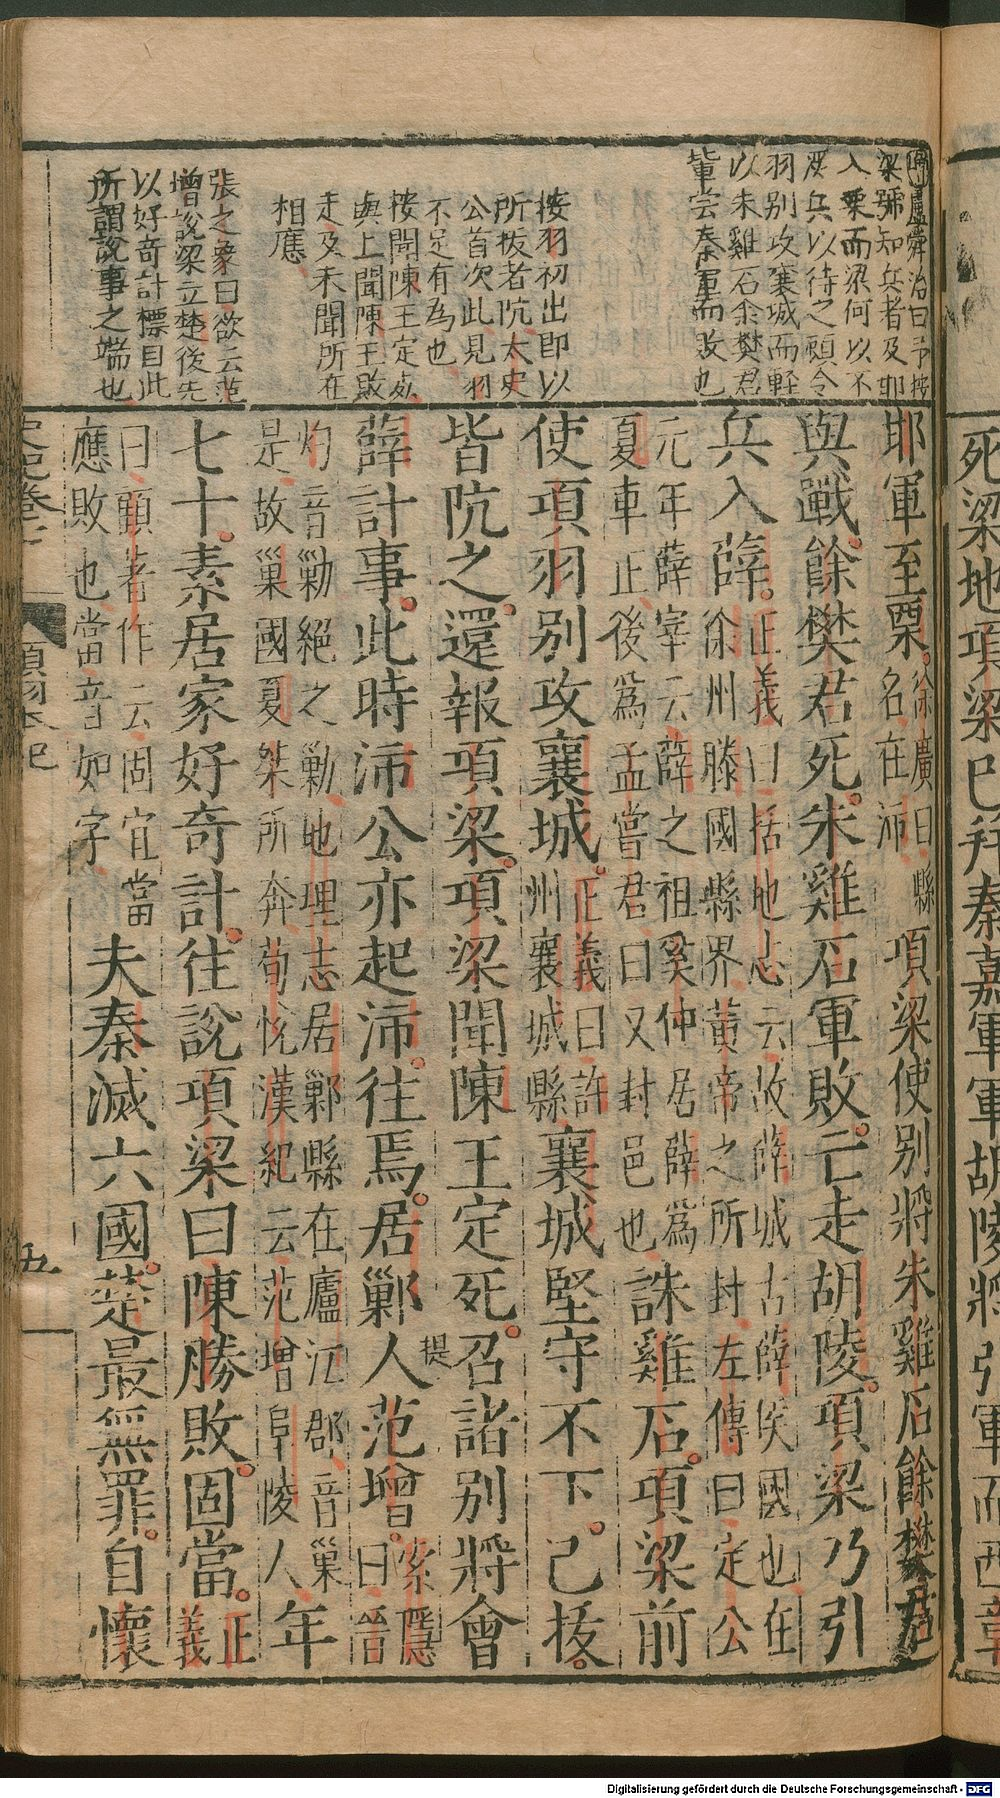 死梁地項梁已并秦嘉軍軍胡陵將引軍而西章
盧舜治曰予按
梁號知兵者及邯
入栗而梁何以不
以待之顧令
羽别攻襄城而輕
以朱雞石余樊君
輩嘗秦軍而敗也
按羽初出即以
所拔者阬太史
公首次此見羽
不足有為也
按聞陳王定死
與上聞陳王敗
走及未聞所在
相應
張之象曰欲云范
增說梁立楚後先
以好奇計標目此
所謂說事之端也
耶軍至栗。徐廣曰縣名在沛項梁使别將朱雞石餘樊君
與戰。餘樊君死。朱雞石軍敗。亡走胡陵。項梁乃引
兵入薛。正義曰括地志云故薛城古薛侯國也在徐州滕國縣界黃帝之所封左傳曰定公
元年薛宰云薛之祖奚仲居薛爲夏車正後爲孟嘗君曰又封邑也誅雞石。項梁前
使項羽别攻襄城。正義曰許州襄城縣襄城堅守不下。已拔。
皆阬之。還報項梁。項梁聞陳王定死。召諸别將會
薛計事。此時沛公亦起沛。往焉。居鄛人范增。索隱曰晉
提
灼音勦絕之勦地理志居鄛縣在廬江郡音巢是故巢國夏桀所奔荀悅漢紀云范增阜陵人年
七十。素居家好奇計。往說項梁曰陳勝敗固當。正義
曰顧著作云固宜當應敗也當音如字夫秦滅六國。楚最無罪。自懷
史記卷七
項羽本紀
五
Digitalisierung gefördert durch die Deutsche Forschungsgemeinschaft - DFG